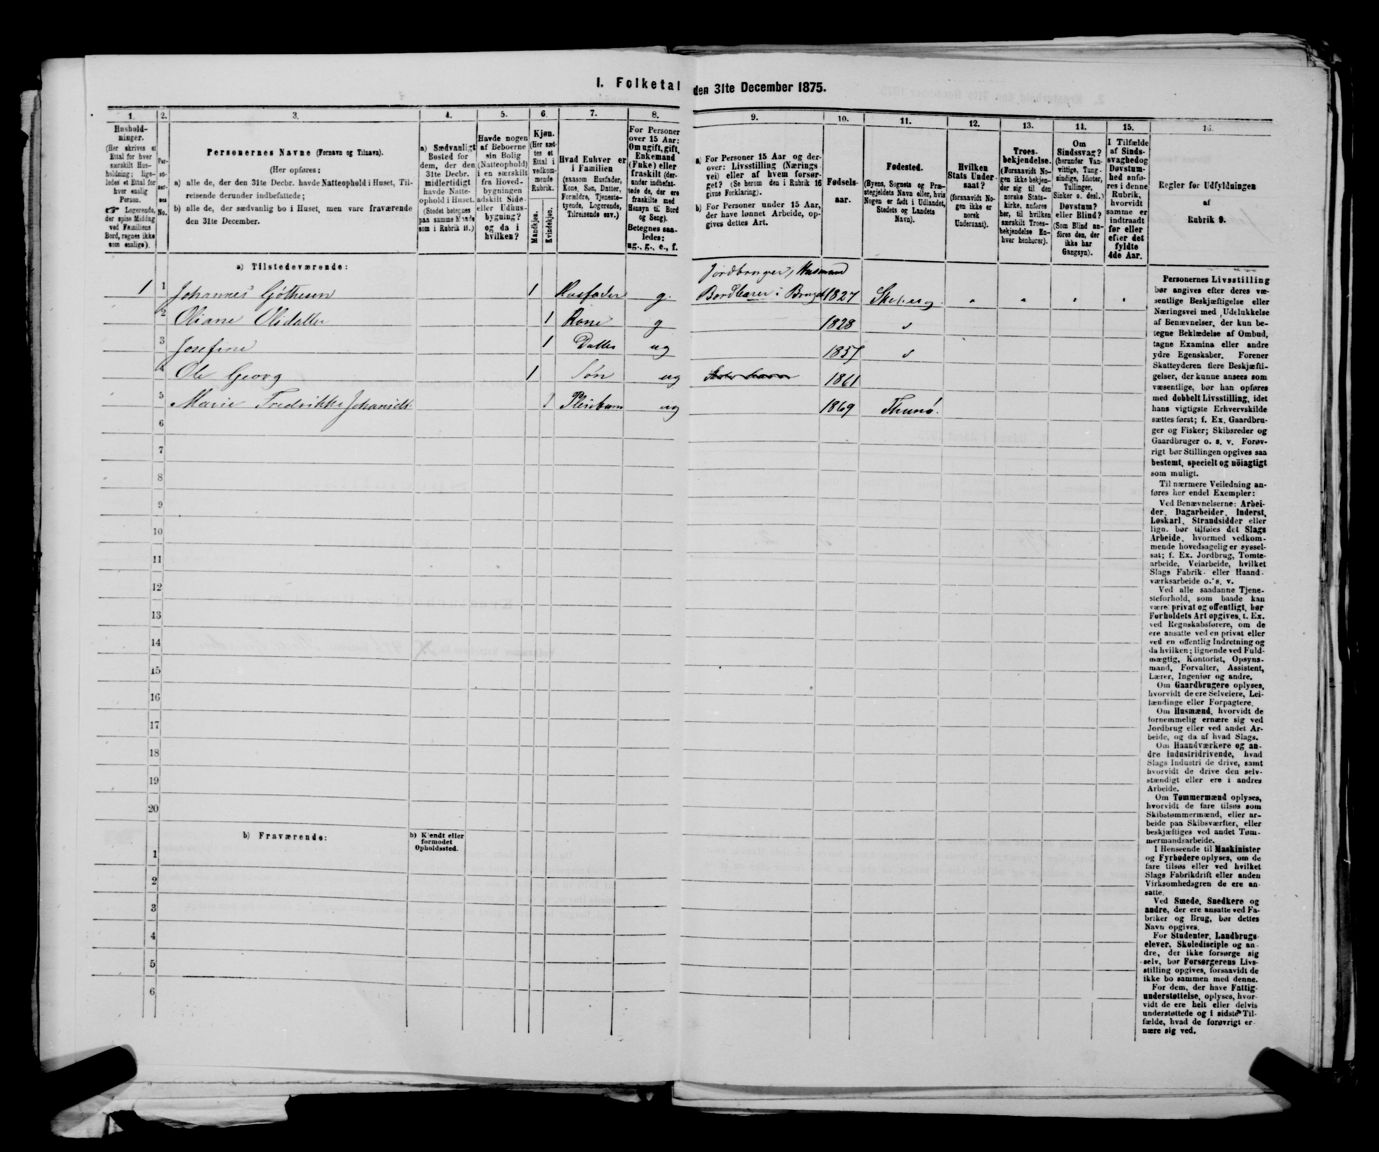 I. Folketal den 31te December 1875.
1. 2. 3. 4. 5. 6. 7. 8. 9. 10. 11. 12. 13. 14. 15. 16.
Hushold-
ninger.
(Her skrives et
Ettal for hver
særskilt Hus-
holdning; lige-
ledes et Ettal for
hver enslig
Person.
☞ Logerende,
der spise Middag
ved Familiens
Bord, regnes ikke
som enslige).
Personernes Navne (Fornavn og Tilnavn).
(Her opføres:
a) alle de, der den 31te Decbr. havde Natteophold i Huset, Til-
reisende derunder indbefattede;
b) alle de, der sædvanlig bo i Huset, men vare fraværende
den 31te December.
a) Sædvanligt
Bosted for
dem, der den
31te Decbr.
midlertidigt
havde Natte-
ophold i Huset.
(Stedet betegnes
paa samme Maade
som i Rubrik 11.)
Havde nogen
af Beboerne
sin Bolig
(Natteophold)
i en særskilt
fra Hoved-
bygningen
adskilt Side-
eller Udhus-
bygning?
og da i
hvilken?
Kjøn.
(Her sæt-
tes et
Ettal i
vedkom-
mende
Rubrik.
Mandkjøn.
Kvindekjøn.
Hvad Enhver er
i Familien
(saasom Husfader,
Kone, Søn, Datter,
Forældre, Tjeneste-
tyende, Logerende,
Tilreisende osv.)
For Personer
over 15 Aar:
Om ugift, gift,
Enkemand
(Enke) eller
fraskilt (der-
under indbefat-
tede de, der ere
fraskilte med
Hensyn til Bord
og Seng).
Betegnes saa-
ledes:
ug., g., e., f.
a) For Personer 15 Aar og der-
over: Livsstilling (Nærings-
vei) eller af hvem forsør-
get? (Se herom den i Rubrik 16
givne Forklaring).
b) For Personer under 15 Aar,
der have lønnet Arbeide, op-
gives dettes Art.
Fødsels-
aar.
Fødested.
(Byens, Sognets og Præ-
stegjeldets Navn eller, hvis
Nogen er født i Udlandet,
Stedets og Landets
Navn).
Hvilken
Stats Under-
saat?
(forsaavidt No-
gen ikke er
norsk
Undersaat).
Troes-
bekjendelse.
(Forsaavidt No-
gen ikke bekjen-
der sig til den
norske Stats-
kirke, anføres
her, til hvilken
særskilt Troes-
bekjendelse En-
hver henhører).
Om
Sindssvag?
(herunder Van-
vittige, Tung-
sindige, Idioter,
Tullinger,
Sinker o. desl.)
Døvstum?
eller Blind?
(Som Blind an-
føres den, der
ikke har
Gangsyn).
I Tilfælde
af Sinds-
svaghed og
Døvstum-
hed anfø-
res i denne
Rubrik,
hvorvidt
samme er
indtraadt
før eller
efter det
fyldte
4de Aar.
Regler for Udfyldningen
af
Rubrik 9.
a) Tilstedeværende:
Jordbruger, Husmand
1 1 Johannes 1 Husfader g. 1827
2 1 Kone g 1828 "
3 Josefine 1 Datter ug 1857 "
4 Ole Georg 1 Søn ug 1861
5 Marie Fredrikke 1 Pleiebarn ug 1869
6
7
8
9
10
11
12
13
14
15
16
17
18
19
20
b) Fraværende:
b) Kjendt eller
formodet
Opholdssted.
1
2
3
4
5
6
Personernes Livsstilling
bør angives efter deres væ-
sentlige Beskjæftigelse eller
Næringsvei med Udelukkelse
af Benævnelser, der kun be-
tegne Beklædelse af Ombud,
tagne Examina eller andre
ydre Egenskaber. Forener
Skatteyderen flere Beskjæfti-
gelser, der kunne ansees som
væsentlige, bør han opføres
med dobbelt Livsstilling, idet
hans vigtigste Erhvervskilde
sættes først; f. Ex. Gaardbru-
ger og Fisker; Skibsreder og
Gaardbruger o. s. v. Forøv-
rigt bør Stillingen opgives saa
bestemt, specielt og nøiagtigt
som muligt.
Til nærmere Veiledning an-
føres her endel Exempler:
Ved Benævnelserne: Arbei-
der, Dagarbeider, Inderst,
Løskarl, Strandsidder eller
lign. bør tilføies det Slags
Arbeide, hvormed vedkom-
mende hovedsagelig er syssel-
sat; f. Ex. Jordbrug, Tomte-
arbeide, Veiarbeide, hvilket
Slags Fabrik- eller Haand-
værksarbeide o. s. v.
Ved alle saadanne Tjene-
steforhold, som baade kan
være privat og offentligt, bør
Forholdets Art opgives, f. Ex.
ved Regnskabsførere, om de
ere ansatte ved en privat eller
ved en offentlig Indretning og
da hvilken; lignende ved Fuld-
mægtig, Kontorist, Opsyns-
mand, Forvalter, Assistent,
Lærer, Ingeniør og andre.
Om Gaardbrugere oplyses,
hvorvidt de ere Selveiere, Lei-
lændinge eller Forpagtere.
Om Husmænd, hvorvidt de
fornemmelig ernære sig ved
Jordbrug eller ved andet Ar-
beide, og da af hvad Slags.
Om Haandværkere og an-
dre Industridrivende, hvad
Slags Industri de drive, samt
hvorvidt de drive den selv-
stændigt eller ere i andres
Arbeide.
Om Tømmermænd oplyses,
hvorvidt de fare tilsøs som
Skibstømmermænd, eller ar-
beide paa Skibsværfter, eller
beskjæftiges ved andet Tøm-
mermandsarbeide.
I Henseende til Maskinister
og Fyrbødere oplyses, om de
fare tilsøs eller ved hvilket
Slags Fabrikdrift eller anden
Virksomhedsgren de ere an-
satte.
Ved Smede, Snedkere og
andre, der ere ansatte ved Fa-
briker og Brug, bør dettes
Navn opgives.
For Studenter, Landbrugs-
elever, Skoledisciple og an-
dre, der ikke forsørge sig
selv, bør Forsørgerens Livs-
stilling opgives, forsaavidt de
ikke bo sammen med denne.
For dem, der have Fattig-
understøttelse, oplyses, hvor-
vidt de ere helt eller delvis
understøttede og i sidste Til-
fælde, hvad de forøvrigt er-
nære sig ved.